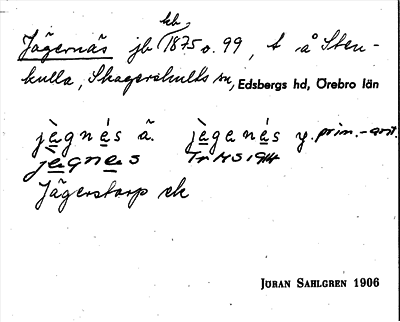 kb
Jägernäs jb 1875 o. 99, t å Sten-
kulla, Skagershults sn, Edsbergs hd, Örebro län
jègnés ä. jègenés y. prim.-
jègnes Tr HS 1914
Jägerstorp ek
JÖRAN SAHLGREN 1906